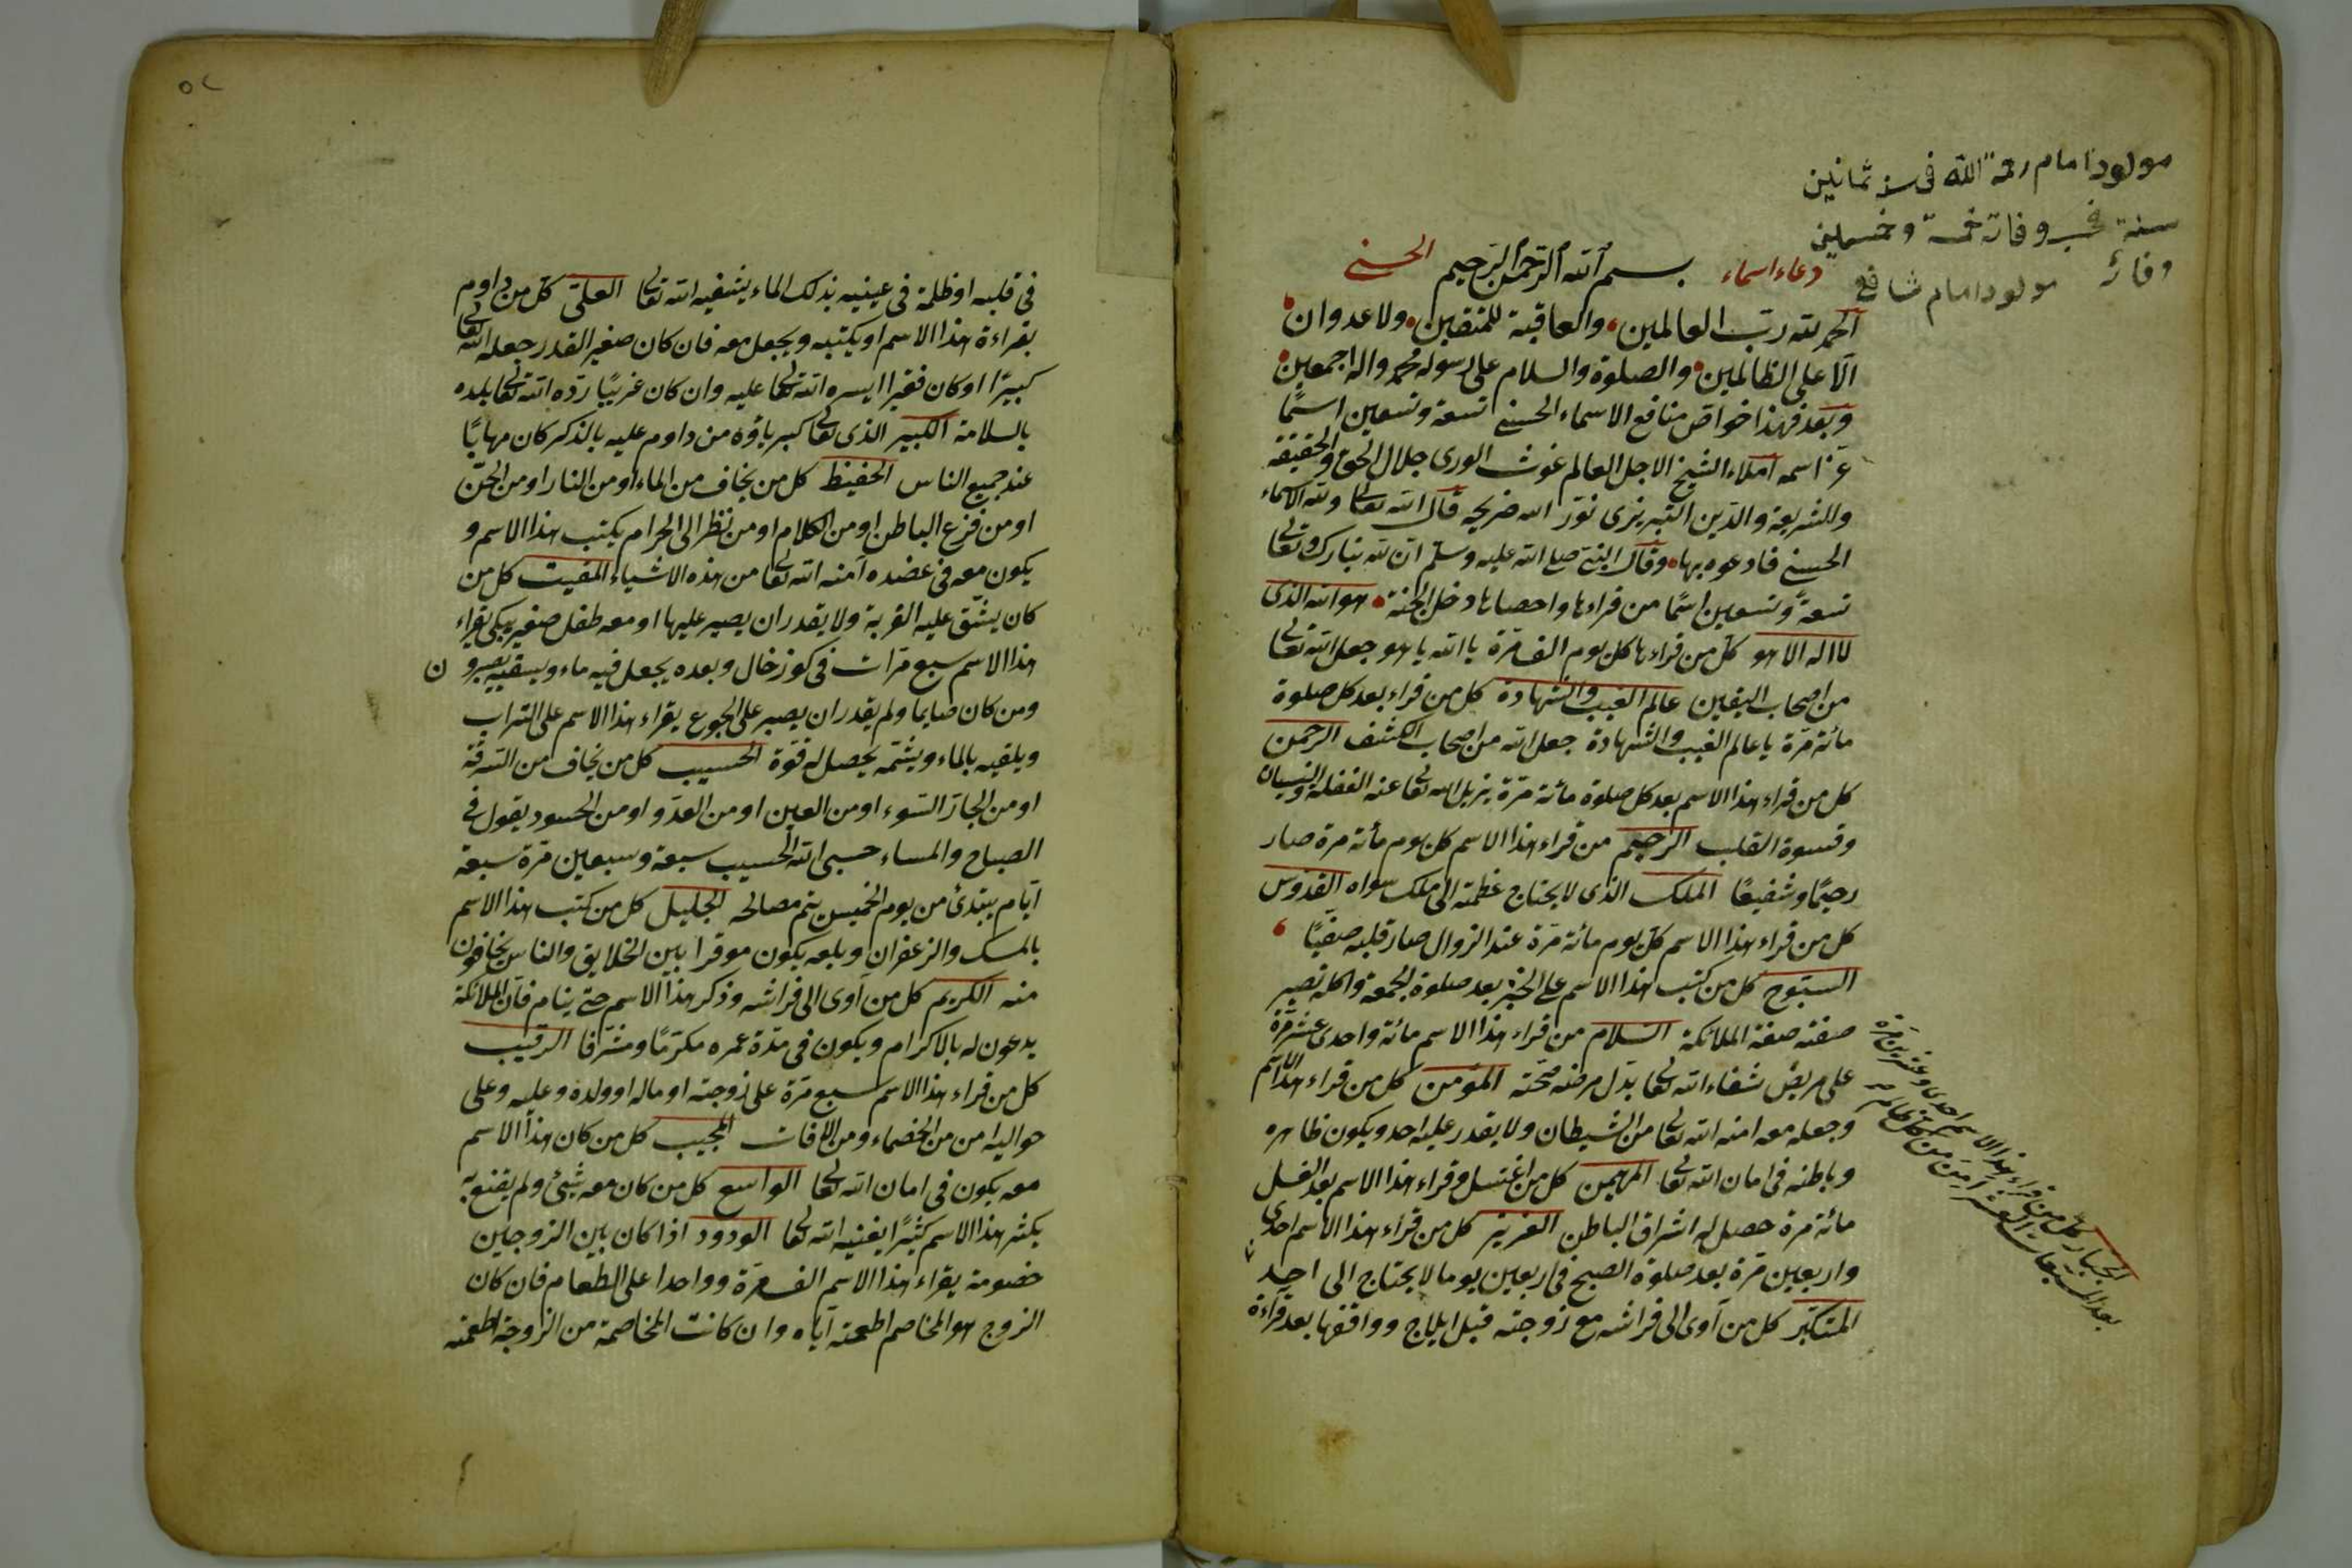 مولود امام رحمة الله فى سنه ثمانين
سنة فى وفاته خمسة وخمسين
وفاته مولود امام شافعى
دعاء اسماء الحسنى
بسم الله الرحمن الرحيم
الحمد لله رب العالمين والعاقبة للمتقين ولا عدوان
الا على الظالمين والصلوة والسلام على رسوله محمد واله اجمعين
وبعد فهذا خواص منافع الاسماء الحسنى تسعة وتسعين اسمًا
عز اسمه املاء الشيخ الاجل العالم غوث الورى جلال الحق والحقيقة
وللشريعة والدين التبريزى نور الله ضريحه قال الله تعالى ولله الاسماء
الحسنى فادعوه بها وقال النبى صلى الله عليه وسلم ان لله تبارك وتعالى
تسعةً وتسعين اسمًا من قراءها واحصاها دخل الجنة هو الله الذى
لا اله الا هو كل من قراءها كل يوم الف مرة يا الله يا هو جعل الله تعالى
من اصحاب اليقين عالم الغيب والشهادة كل من قراء بعد كل صلوة
مائة مرة يا عالم الغيب والشهادة جعل الله من اصحاب الكشف الرحمن
كل من قراء هذا الاسم بعد كل صلوة مائة مرة يزيل الله تعالى عنه الغفلة والنسيان
وقسوة القلب الرحيم من قراء هذا الاسم كل يوم مائة مرة صار
رحيمًا وشفيعًا الملك الذى لا يحتاج عظمته الى ملك سواه القدوس
كل من قراء هذا الاسم كل يوم مائة مرة عند الزوال صار قلبه صفيًا
السبوح كل من كتب هذا الاسم على الخبز بعد صلوة الجمعة واكله تصير
صفته صفة الملائكة السلام من قراء هذا الاسم مائة واحدى عشر مرة
على مريض شفاء الله تعالى بدل مرضه صحته المؤمن كل من قراء هذا الاسم
وجعله معه امنه الله تعالى من الشيطان ولا يقدر عليه احد ويكون ظاهره
وباطنه فى امان الله تعالى المهيمن كل من اغتسل وقراء هذا الاسم بعد الغسل
مائة مرة حصل له اشراق الباطن العزيز كل من قراء هذا الاسم احدى
واربعين مرة بعد صلوة الصبح فى اربعين يوما لا يحتاج الى احد
المتكبر كل من آوى الى فراشه مع زوجته قبل ايلاج وواقفها بعد قراءة
الجبار كل من قراء هذا الاسم احدى وعشرين مرة
بعد المسبعات العشر امن من كل ظالم
٥٢
فى قلبه او ظلمة فى عينيه بذلك الماء يشفيه الله تعالى العلى كل من داوم
بقراءة هذا الاسم او يكتبه ويجعل معه فان كان صغير القدر جعله الله تعالى
كبيرًا او كان فقيرا ايسره الله تعالى عليه وان كان غريبًا رده الله تعالى بلده
بالسلامة الكبير الذى تعالى كبرياؤه من داوم عليه بالذكر كان مهابًا
عند جميع الناس الحفيظ كل من يخاف من الماء او من النار او من الجن
او من فزع الباطن او من الكلام او من نظر الى الحرام يكتب هذا الاسم و
يكون معه فى عضده آمنه الله تعالى من هذه الاشياء المقيت كل من
كان يشق عليه الغربة ولا يقدر ان يصبر عليها او معه طفل صغير يبكى يقراء
هذا الاسم سبع مرات فى كوز خال وبعده يجعل فيه ماء ويسقيه يصبرو ن
ومن كان صايما ولم يقدر ان يصبر على الجوع يقراء هذا الاسم على التراب
ويلقيه بالماء ويشمه يحصل له قوة الحسيب كل من يخاف من السرقة
او من الجار السوء او من العين او من العدو او من الحسود يقول فى
الصباح والمساء حسبى الله الحسيب سبعة وسبعين مرة سبعة
ايام يبتدئ من يوم الخميس يتم مصالحه الجليل كل من كتب هذا الاسم
بالمسك والزعفران وبلعه يكون موقرا بين الخلايق والناس يخافون
منه الكريم كل من آوى الى فراشه وذكر هذا الاسم حتى ينام فان الملائكة
يدعون له بالاكرام ويكون فى مدة عمره مكرمًا ومشرفا الرقيب
كل من قراء هذا الاسم سبع مرة على زوجته او ماله او ولده وعليه وعلى
حواليه امن من الخصماء ومن الافات المجيب كل من كان هذا الاسم
معه يكون فى امان الله تعالى الواسع كل من كان معه شئ ولم يقنع به
يكثر هذا الاسم كثيرًا يغنيه الله تعالى الودود اذا كان بين الزوجين
خصومة يقراء هذا الاسم الف مرة وواحدا على الطعام فان كان
الزوج هو المخاصم اطعمته اياه وان كانت المخاصمة من الزوجة اطعمته